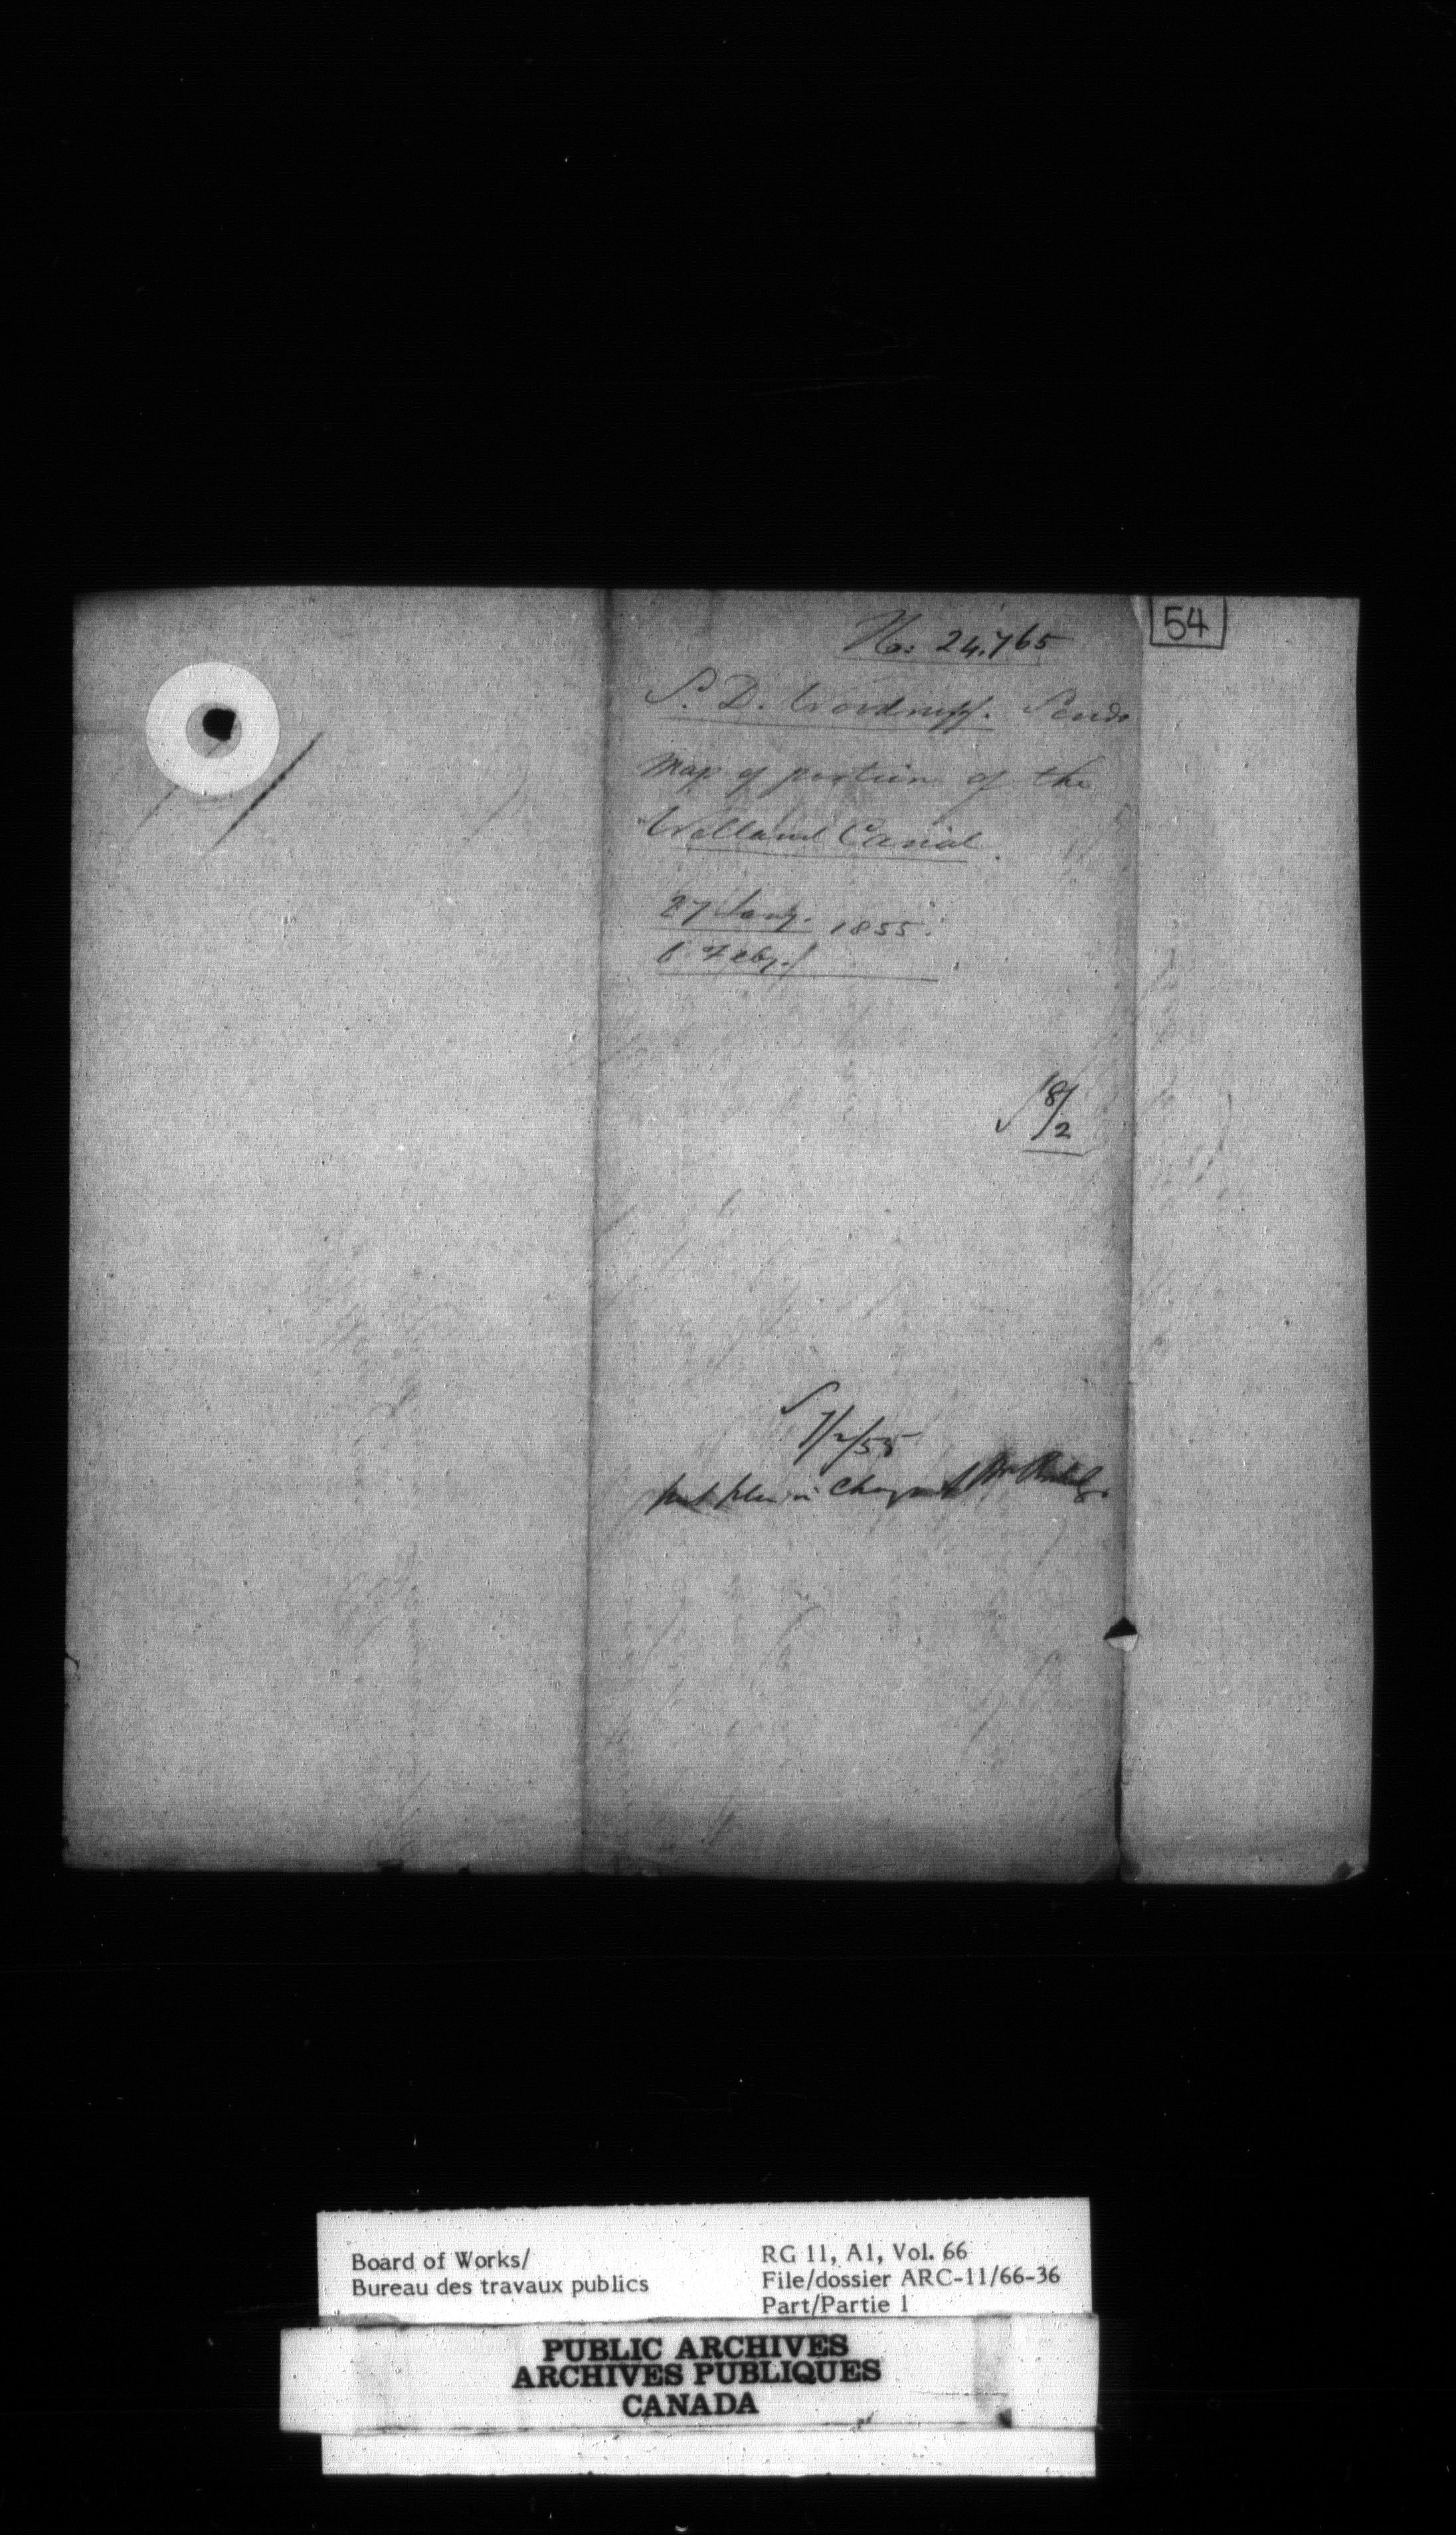 54
No: 24.765
S. D. Woodruff. Sends
Map of portion of the
Welland Canal.
27 Jany. 1855.
6 Feby.
18/2
7/2/55
put plan in charge of Mr
Board of Works/
Bureau des travaux publics
RG 11, A1, Vol. 66
File/dossier ARC-11/66-36
Part/Partie 1
PUBLIC ARCHIVES
ARCHIVES PUBLIQUES
CANADA